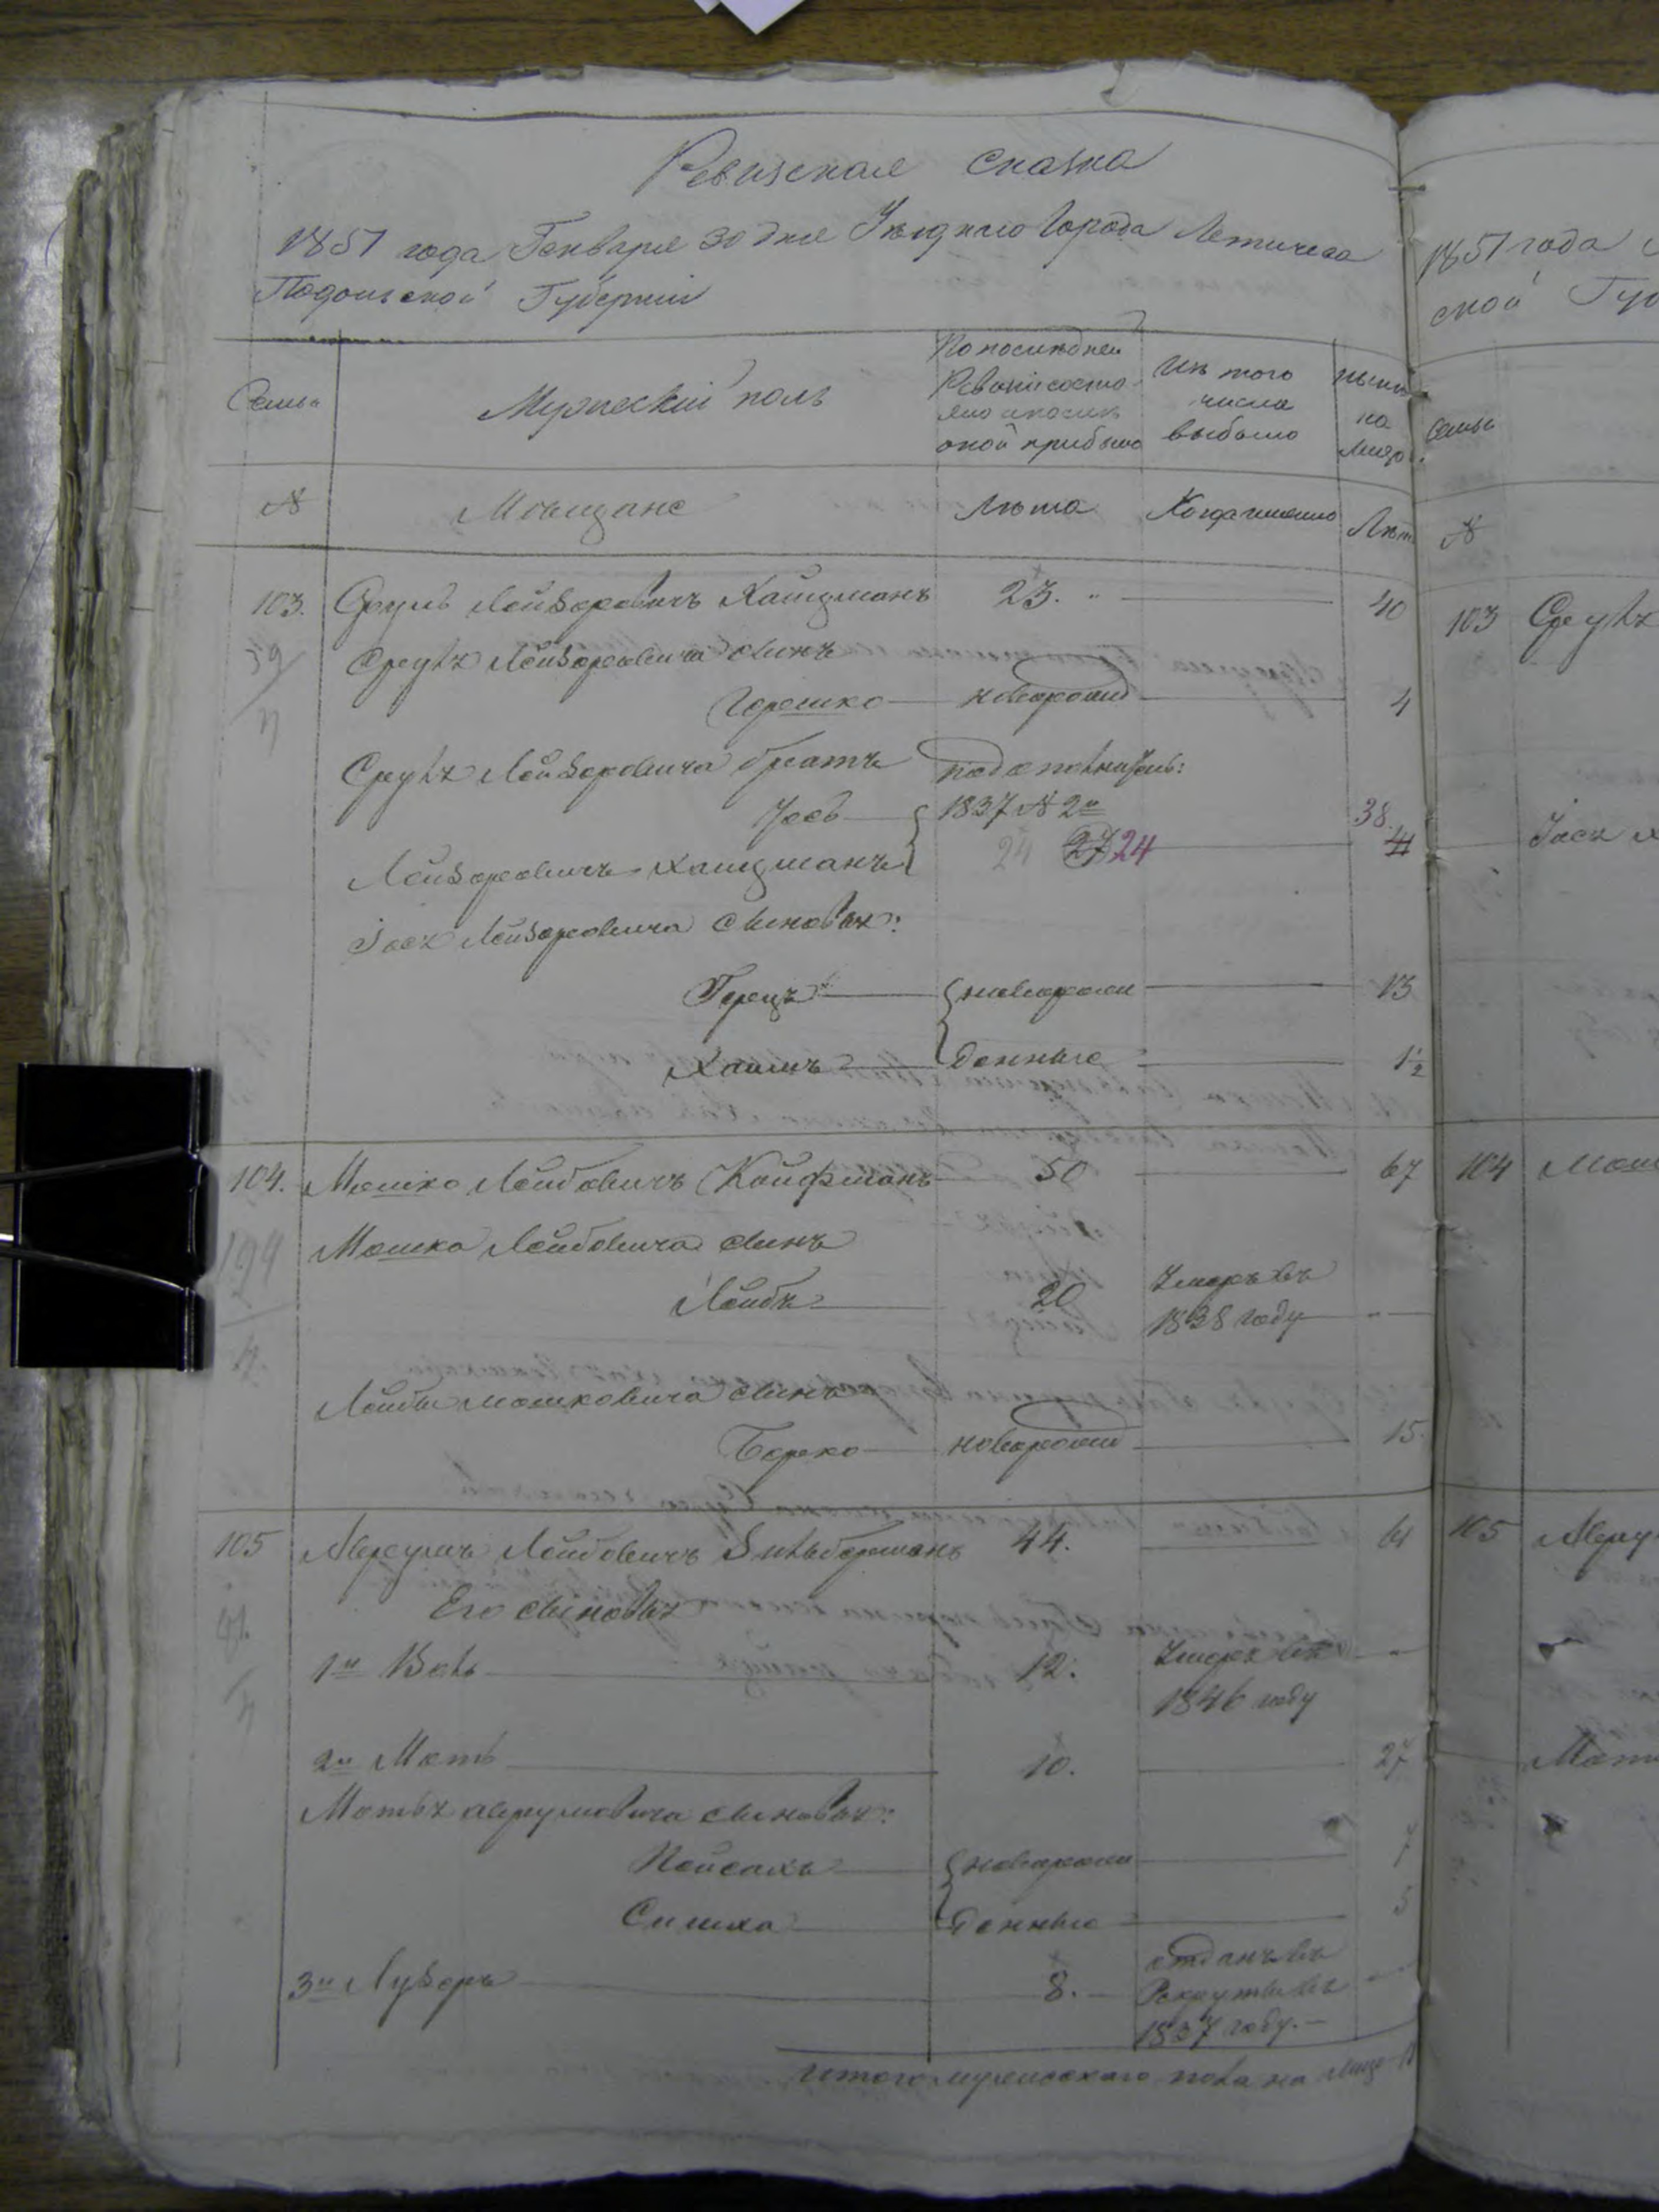 Ревизская Сказка
1851 года Генваря 30 дня Уѣзднаго Города Летичева
Подольской Губерніи
Семьи
Мужескій полъ
По последней
Ревизіи состо-
яло и после
оной прибыло
Изъ того
числа
выбыло
нынѣ
на
лицо
№
Мѣщане
Лѣта
Когда именно
Лѣта
103. Сруль Лейзоровичъ Хайцманъ 23. 40
Сруля Лейзоровича сынъ
Гершко новорожд 4
Сруля Лейзоровича братъ
Іось
1837 № 2й
Лейзоровичъ Хайцманъ 24 27 24 38 41
Іося Лейзоровича сыновья:
Герцъ новорож 13
Хаимъ денные 1½
104. Мошко Лейбовичъ Кайфманъ 50 67
Мошка Лейбовича сынъ
Лейба 20 Умеръ въ
1838 году
Лейбы Мошковича сынъ
Берко новорожд 15
105 Аврумъ Лейбовичъ Зильберманъ 44. 61
Его сыновья
1й Волъ 12. Умеръ въ
1846 году
2й Моть 10. 27
Мотья Аврумовича сыновья:
Пейсахъ новорож 7
Симха денные 5
3й Лузеръ 8. отданъ въ
Рекруты въ
1837 году.
Итого мужескаго пола на лицо
1851 года
ской Губ
Семьи
№
103 Сруля
Іося
104 Мош
105 Авру
Моть